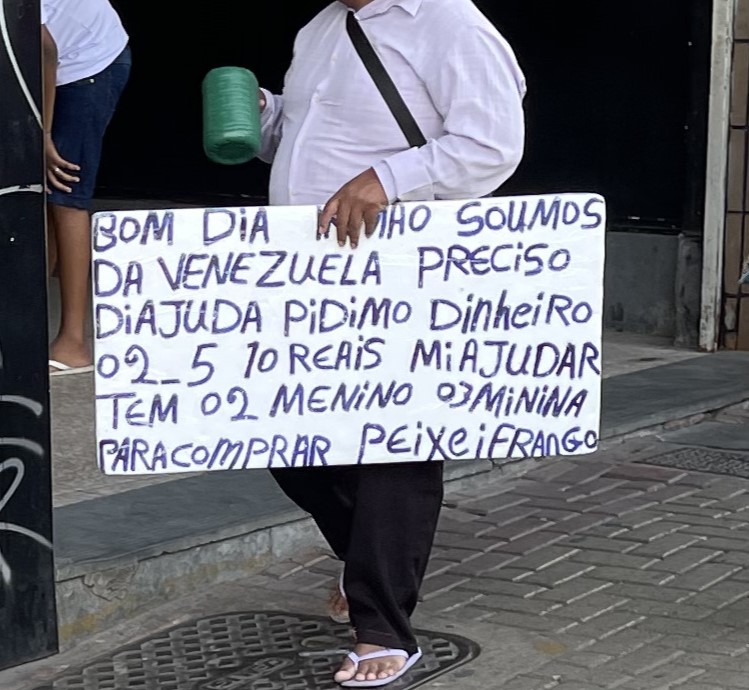 BOM DiA SOUMOS
DA VENEZUELA PRECiSO
DiAJUDA PiDiMO DinheiRO
02_5 10 REAiS MiAJUDAR
TEM 02 MENiNO 03 MiNiNA
PARACOMPRAR PEiXEiFRANGO